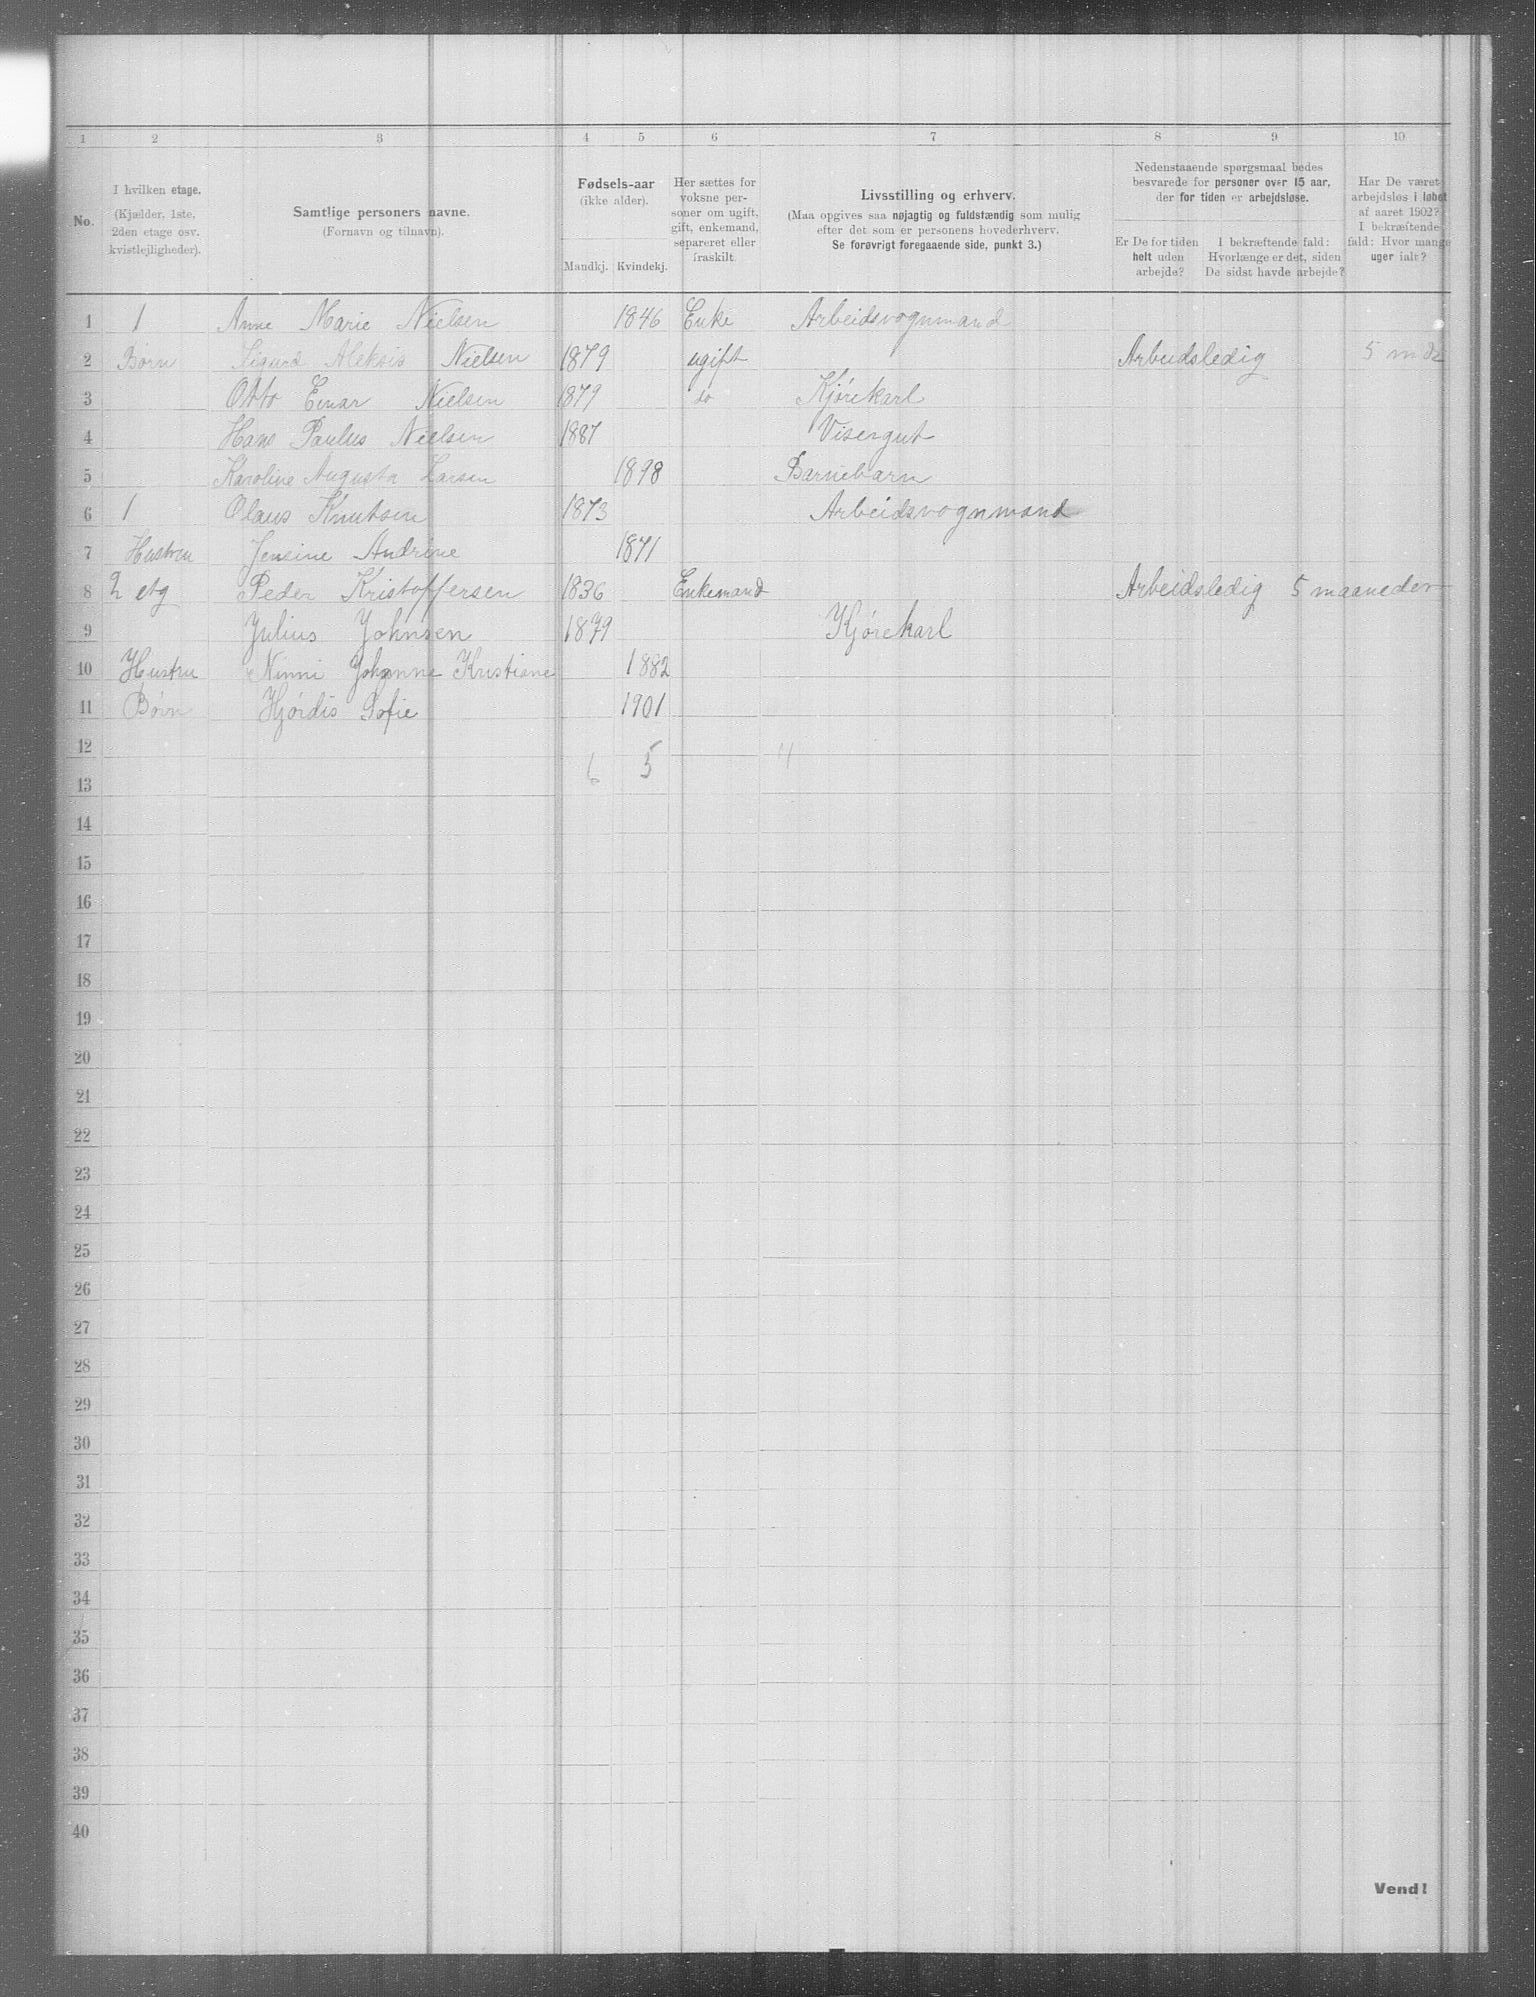 1 2 3 4 5 6 7 8 9 10
No.
I hvilken etage.
(Kjælder, 1ste,
2den etage osv.
kvistlejligheder).
Samtlige personers navne.
(Fornavn og tilnavn).
Fødsels-aar
(ikke alder).
Mandkj. Kvindekj.
Her sættes for
voksne per-
soner om ugift,
gift, enkemand,
separeret eller
fraskilt.
Livsstilling og erhverv.
(Maa opgives saa nøjagtig og fuldstændig som mulig
efter det som er personens hovederhverv.
Se forøvrigt foregaaende side, punkt 3.)
Nedenstaaende spørgsmaal bedes
besvarede for personer over 15 aar,
der for tiden er arbejdsløse.
Er De for tiden
helt uden
arbejde?
I bekræftende fald:
Hvorlænge er det, siden
De sidst havde arbejde?
Har De været
arbejdsløs i løbet
af aaret 1902?
I bekræftende
fald: Hvor mange
uger ialt?
1 1 Anne Marie Nielsen 1846 Enke Arbeidsvognmand
2 Børn Sigurd Aleksis Nielsen 1879 ugift Arbeidsledig 5 mdr
3 Otto Einar Nielsen 1879 do Kjørekarl
4 Hans Paulus Nielsen 1887 Visergut
5 Karoline Augusta Larsen 1898 Barnebarn
6 1 Olaus Knutsen 1873 Arbeidsvognmand
7 Hustru Jensine Andrine 1871
8 2 etg Peder Kristoffersen 1836 Enkemand Arbeidsledig 5 maaneder
9 Julius Johnsen 1879 Kjørekarl
10 Hustru Ninni Johanne Kristiane 1882
11 Børn Hjørdis Sofie 1901
12
6 5 11
13
14
15
16
17
18
19
20
21
22
23
24
25
26
27
28
29
30
31
32
33
34
35
36
37
38
39
40
Vend!